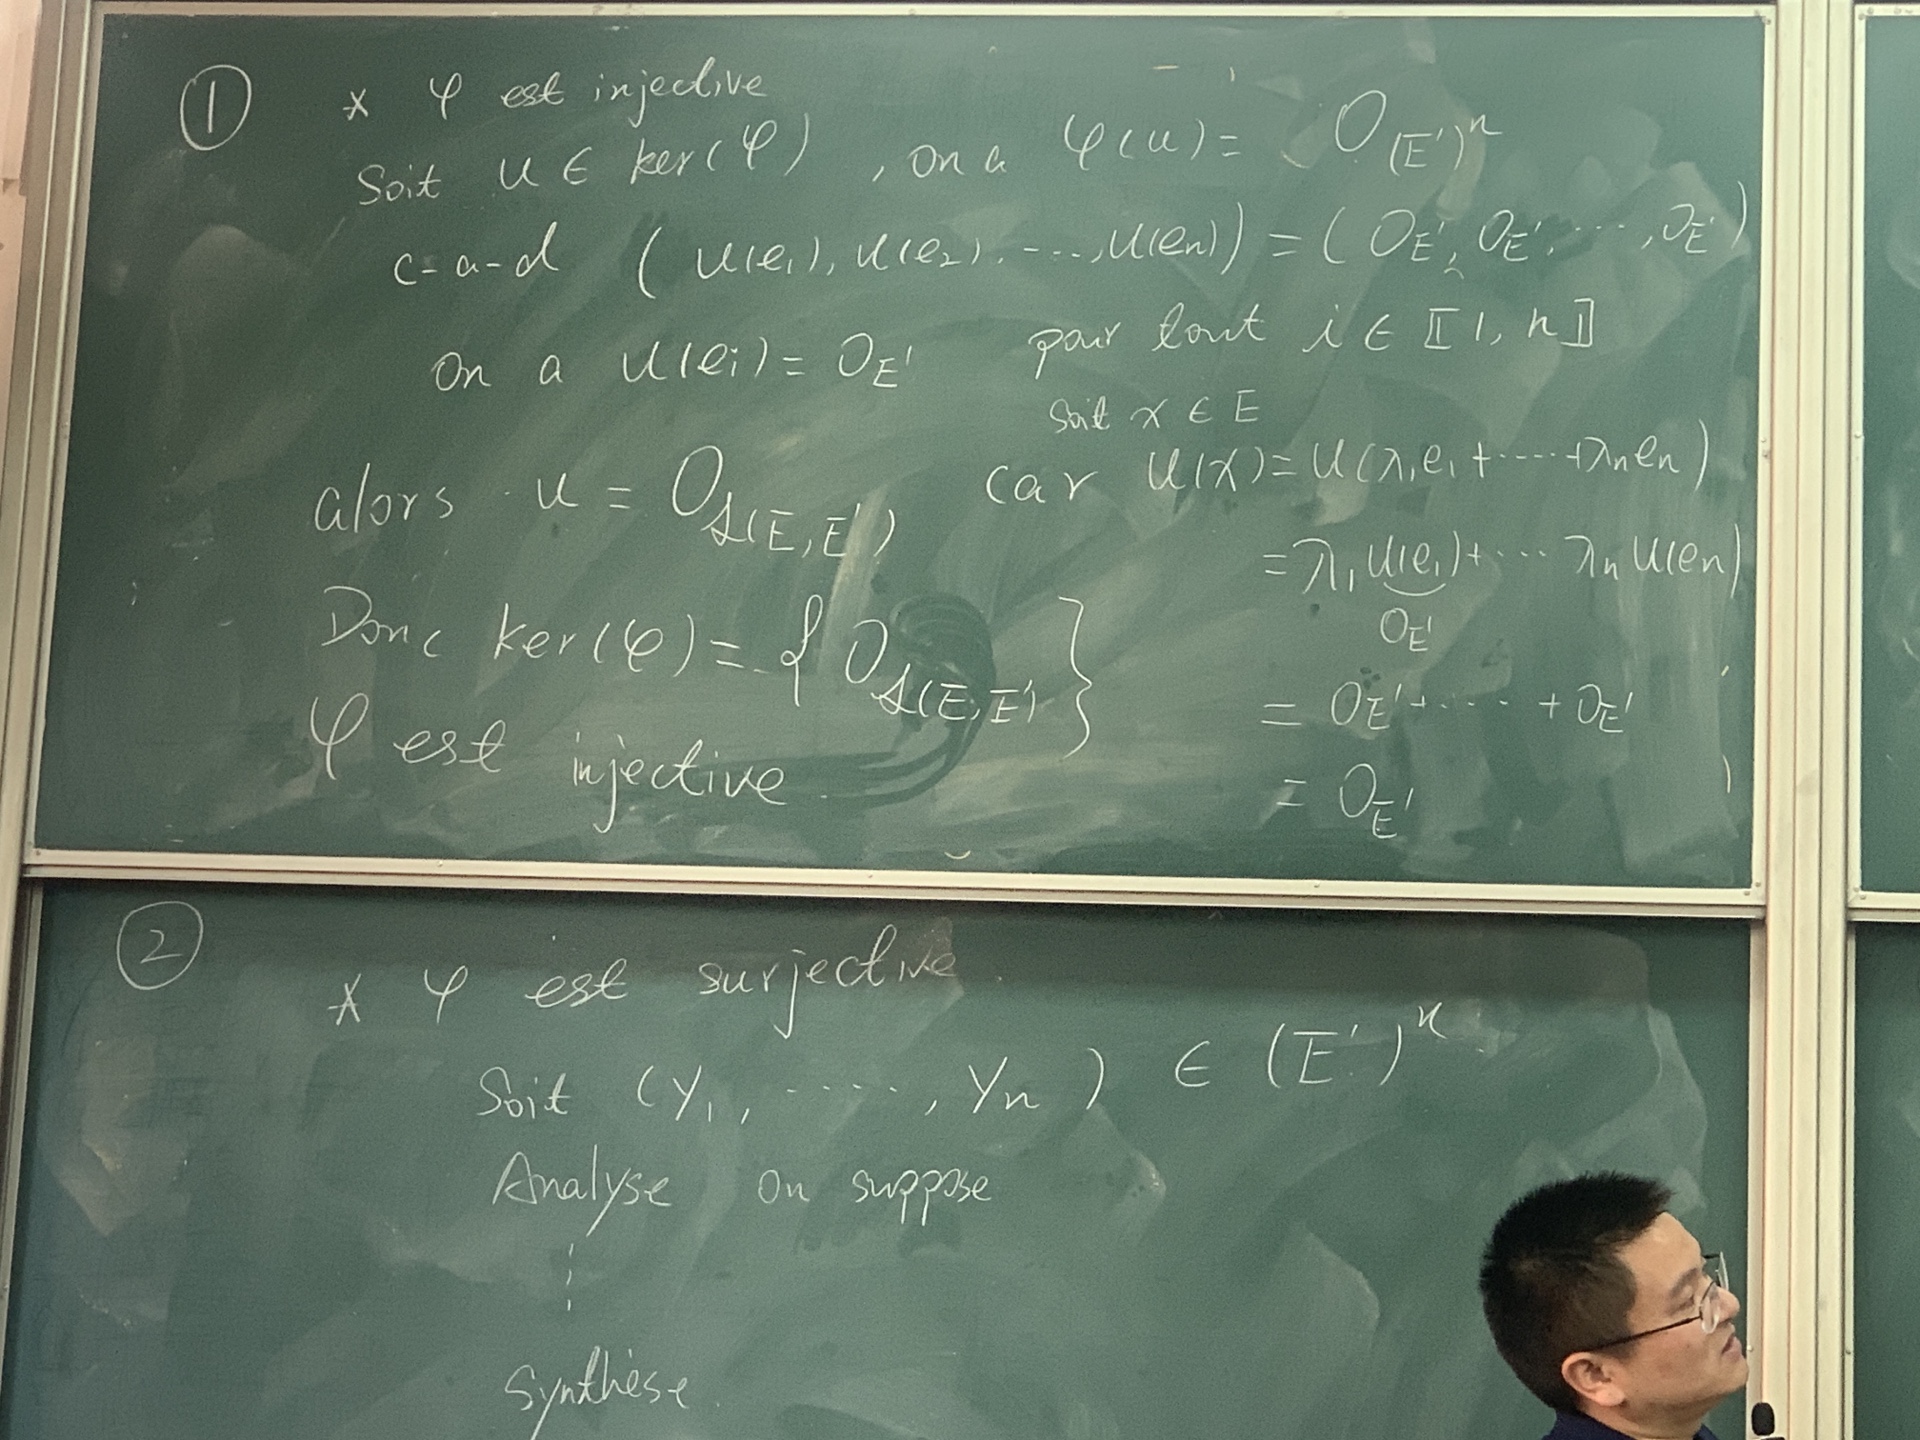 ① * φ est injective
Soit u ∈ ker(φ), on a φ(u) = 0_(E')^n
c-a-d (u(e₁), u(e₂), ...., u(en)) = (0_E', 0_E', ...., 0_E')
on a u(ei) = 0_E' pour tout i ∈ ⟦1, n⟧
soit x ∈ E
alors u = 0_L(E,E') car u(x) = u(λ₁e₁ + ..... + λnen)
= λ₁ u(e₁) + ... λn u(en)
0_E'
Donc ker(φ) = { 0_L(E,E') }
= 0_E' + .... + 0_E'
φ est injective
= 0_E'
②
* φ est surjective.
Soit (y₁, ....., yn) ∈ (E')^n
Analyse on suppose
Synthèse